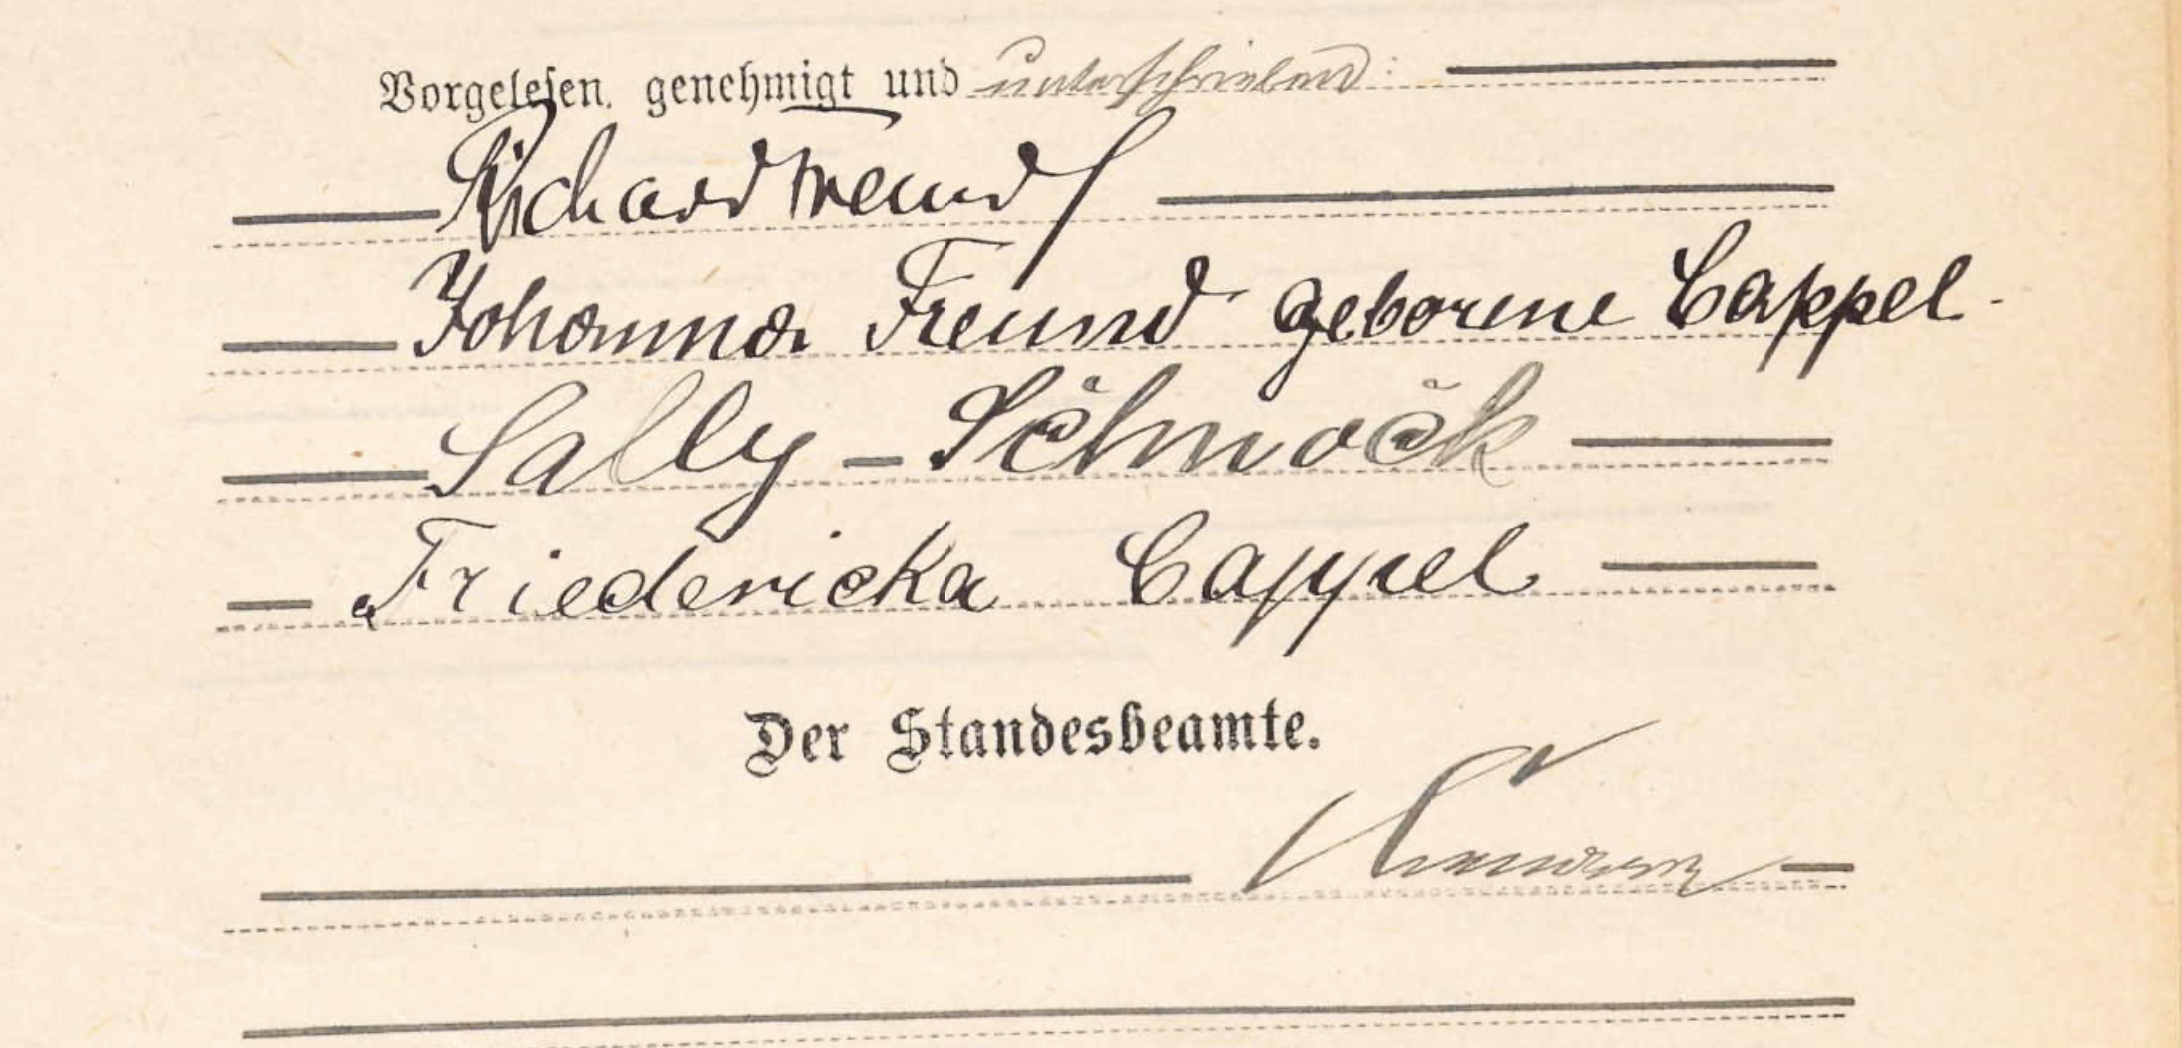 Vorgelesen, genehmigt und unterschrieben:
Richard Freund
Johanna Freund geborene Cappel.
Sally Schmock
Friedericka Cappel
Der Standesbeamte.